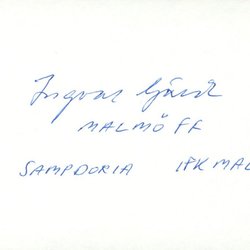 Ingvar Gärd
MALMÖ FF
SAMPDORIA IFK MAL